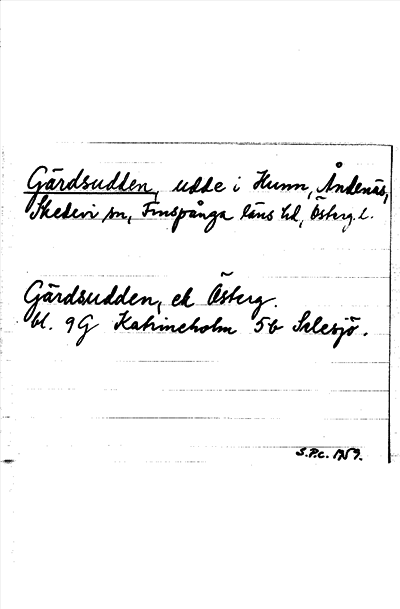 Gärdsudden, udde i Hunn, Åndenäs,
Skedevi sn, Finspånga läns hd, Österg. l.
Gärdsudden, ek Österg.
bl. 9G Katrineholm 5b
S.P.c. 1959.